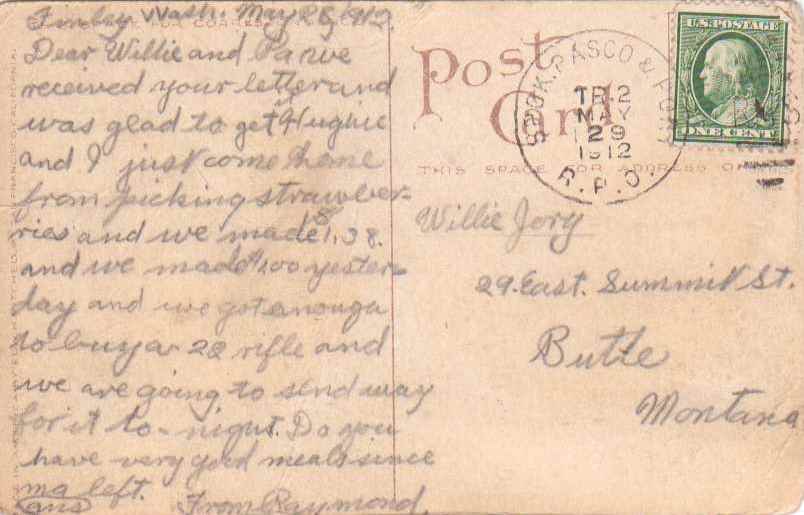 Finley Wash. May 28, 1912.
Dear Willie and Pa we
received your letter and
was glad to get it Hughie
and I just come home
from picking strawber-
ries and we made $1.38.
and we made $1.00 yester-
day and we got enough
to buy a 22 rifle and
we are going to send way
for it to-night. Do you
have very good meals since
ma left.
ans From Raymond
Post
Card
THIS SPACE FOR ADDRESS ONLY
SPOK. PASCO &
TR 2
MAY
29
1912
R.P.O.
U.S. POSTAGE
ONE CENT
Willie Jory
29. East. Summit St.
Butte
Montana